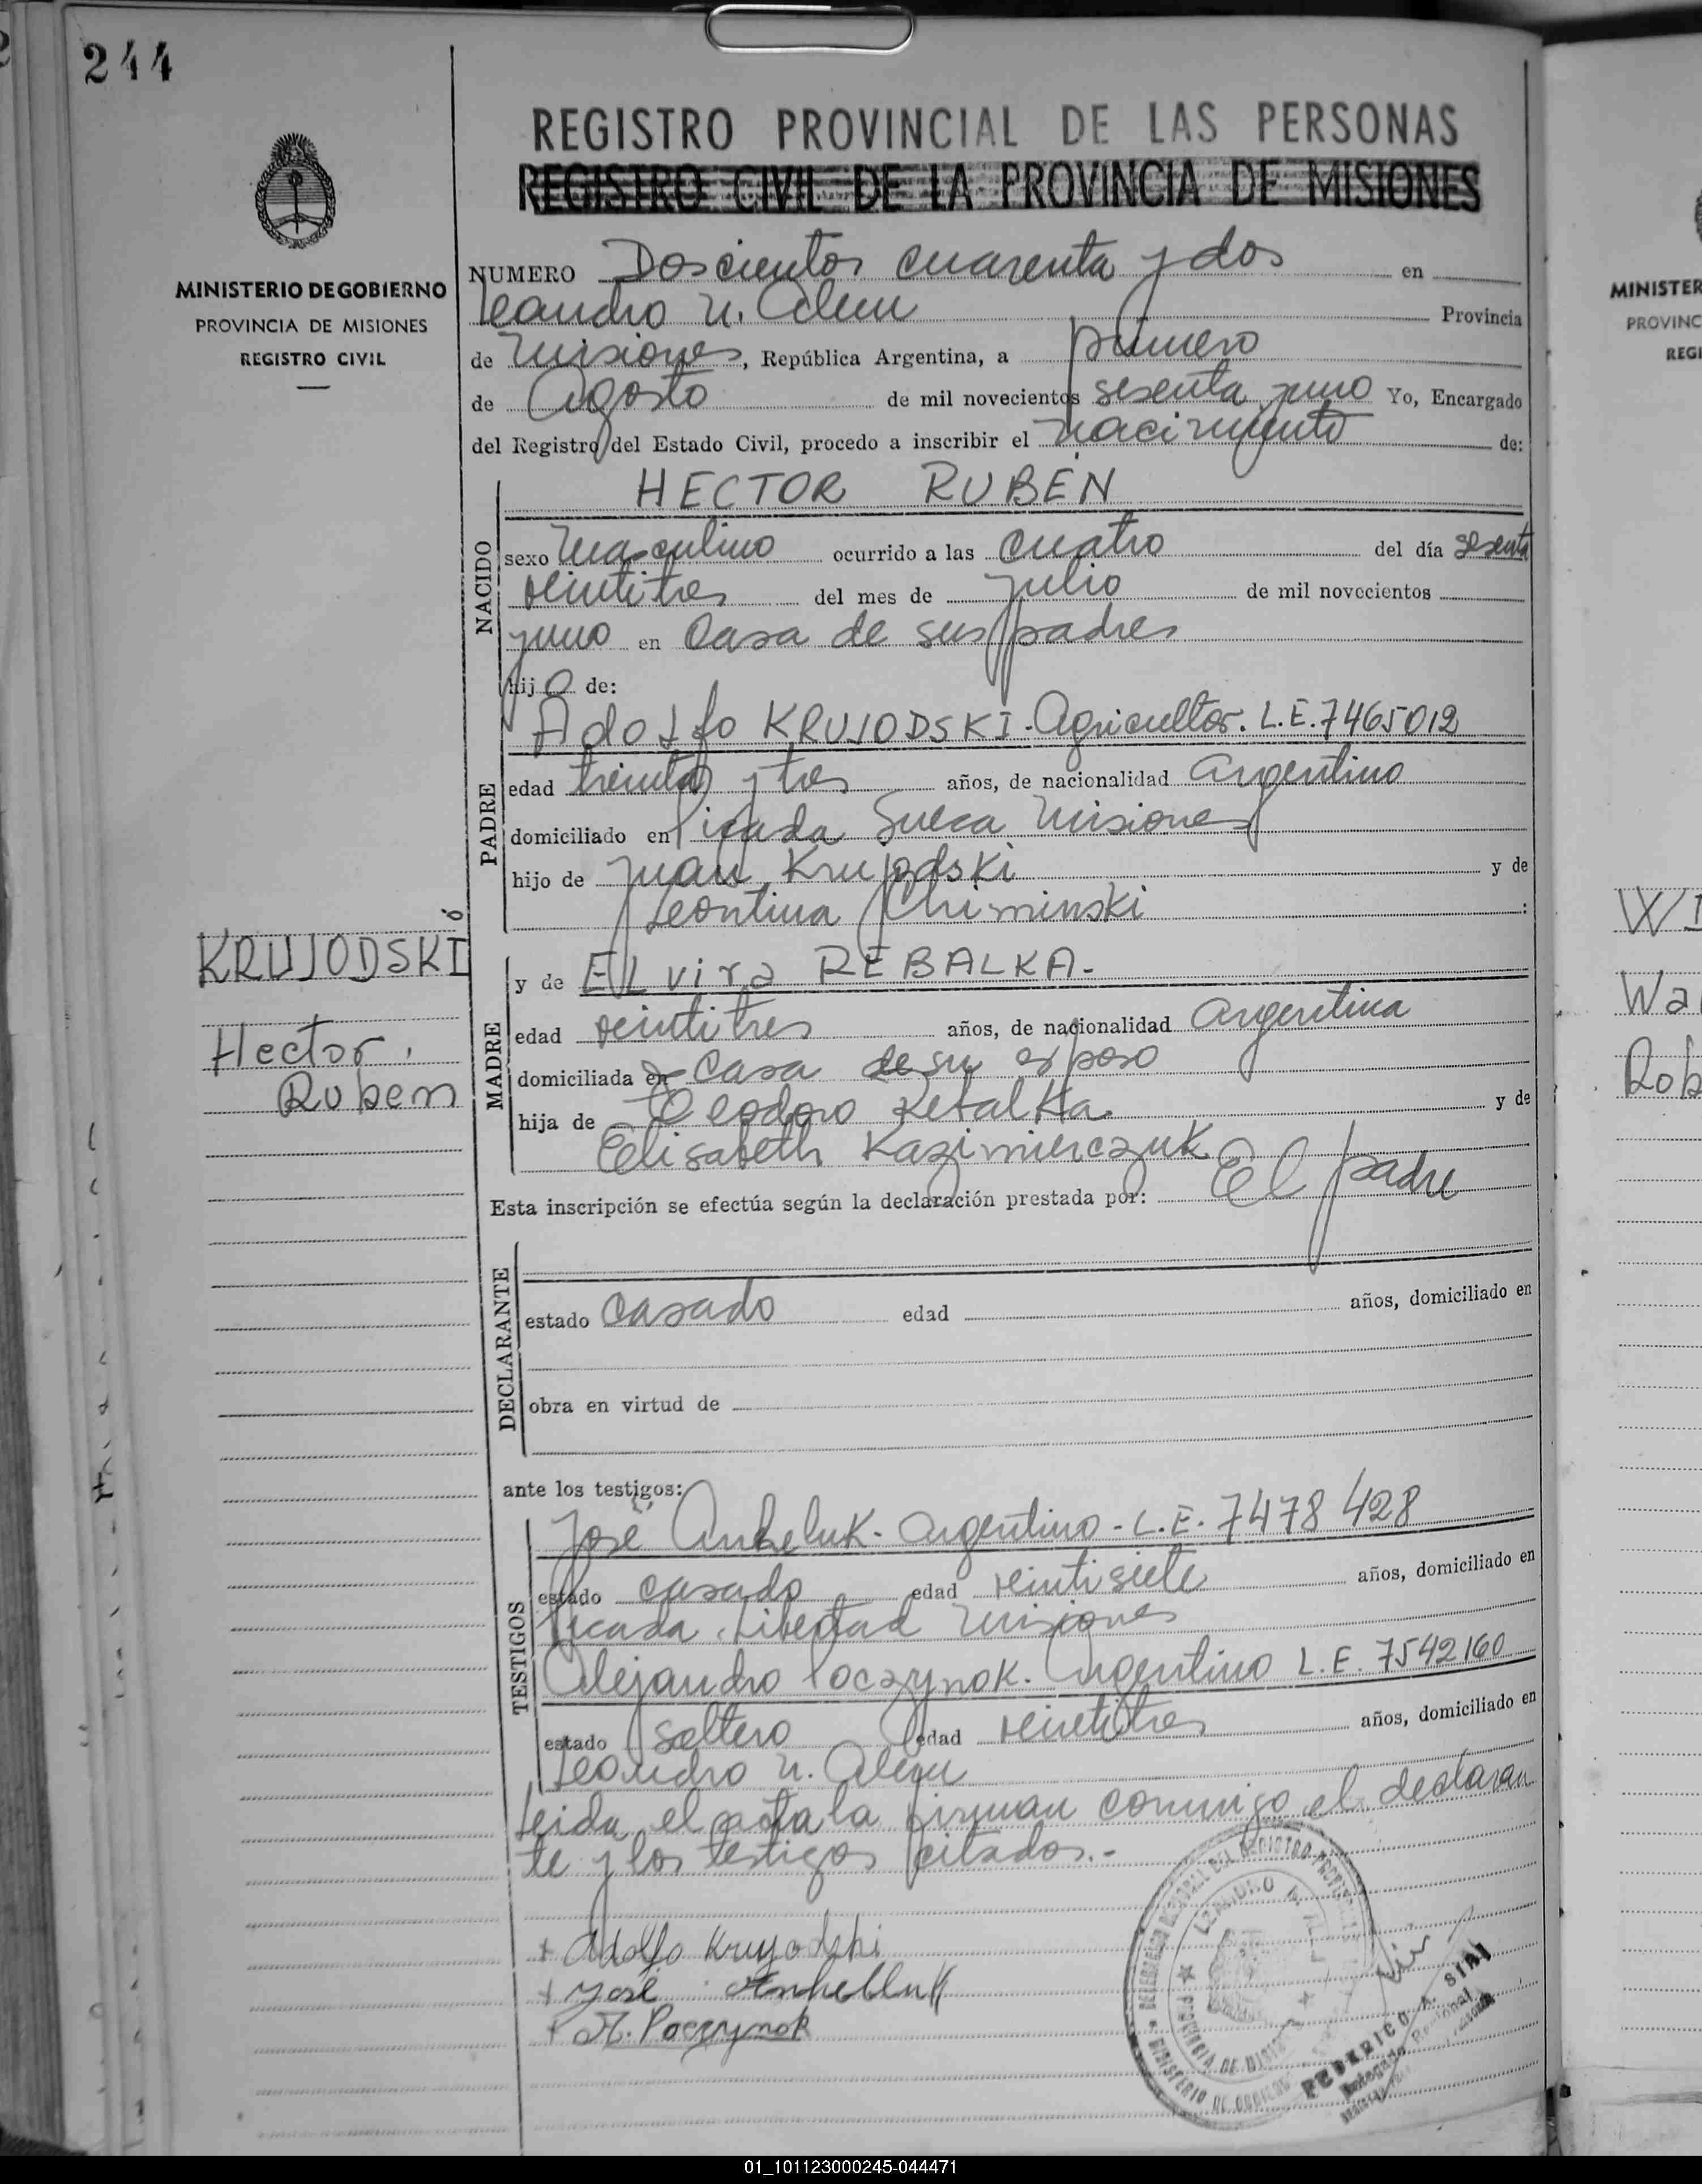 244
MINISTERIO DE GOBIERNO
PROVINCIA DE MISIONES
REGISTRO CIVIL
REGISTRO PROVINCIAL DE LAS PERSONAS
REGISTRO CIVIL DE LA PROVINCIA DE MISIONES
NUMERO Doscientos cuarenta y dos en
Leandro N. Alem Provincia
de Misiones, República Argentina, a primero
de Agosto de mil novecientos sesenta y uno Yo, Encargado
del Registro del Estado Civil, procedo a inscribir el nacimiento de:
HECTOR RUBEN
NACIDO
sexo masculino ocurrido a las cuatro del día sesenta
veintitres del mes de julio de mil novecientos
y uno en Casa de sus padres
hijo de:
Adolfo KRUJODSKI. Agricultor. L.E. 7465012
PADRE
edad treinta y tres años, de nacionalidad Argentino
domiciliado en Picada Sueca Misiones
hijo de Juan Krujodski y de
Leontina Chiminski :
ó
KRUJODSKI
Hector.
Ruben
y de ELvira REBALKA.-
MADRE
edad veintitres años, de nacionalidad Argentina
domiciliada en Casa de su esposo
hija de Teodoro Rebalka. y de
Elisabeth Kazimierczuk
Esta inscripción se efectúa según la declaración prestada por: El padre
DECLARANTE
estado casado edad años, domiciliado en
obra en virtud de
ante los testigos:
TESTIGOS
José Anheluk. Argentino - L.E. 7478428
estado casado edad veintisiete años, domiciliado en
Picada Libertad Misiones
Alejandro Poczynok. Argentino L.E. 7542160
estado soltero edad veintitres años, domiciliado en
Leandro N. Alem
Leida el acta la firman conmigo el declaran
te y los testigos citados.-
+ Adolfo Kruyodski
+ José Anhelluk
+ A. Poczynok
FEDERICO A. SIRI
Delegado Regional
MINISTER
PROVINC
REGI
Wa
Rob
01_101123000245-044471